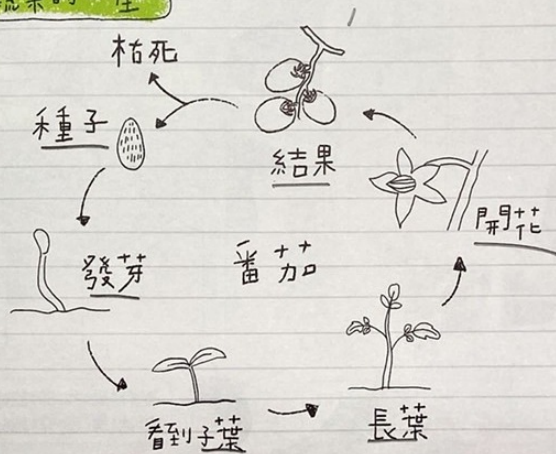 枯死
種子
結果
開花
發芽
番茄
看到子葉
長葉